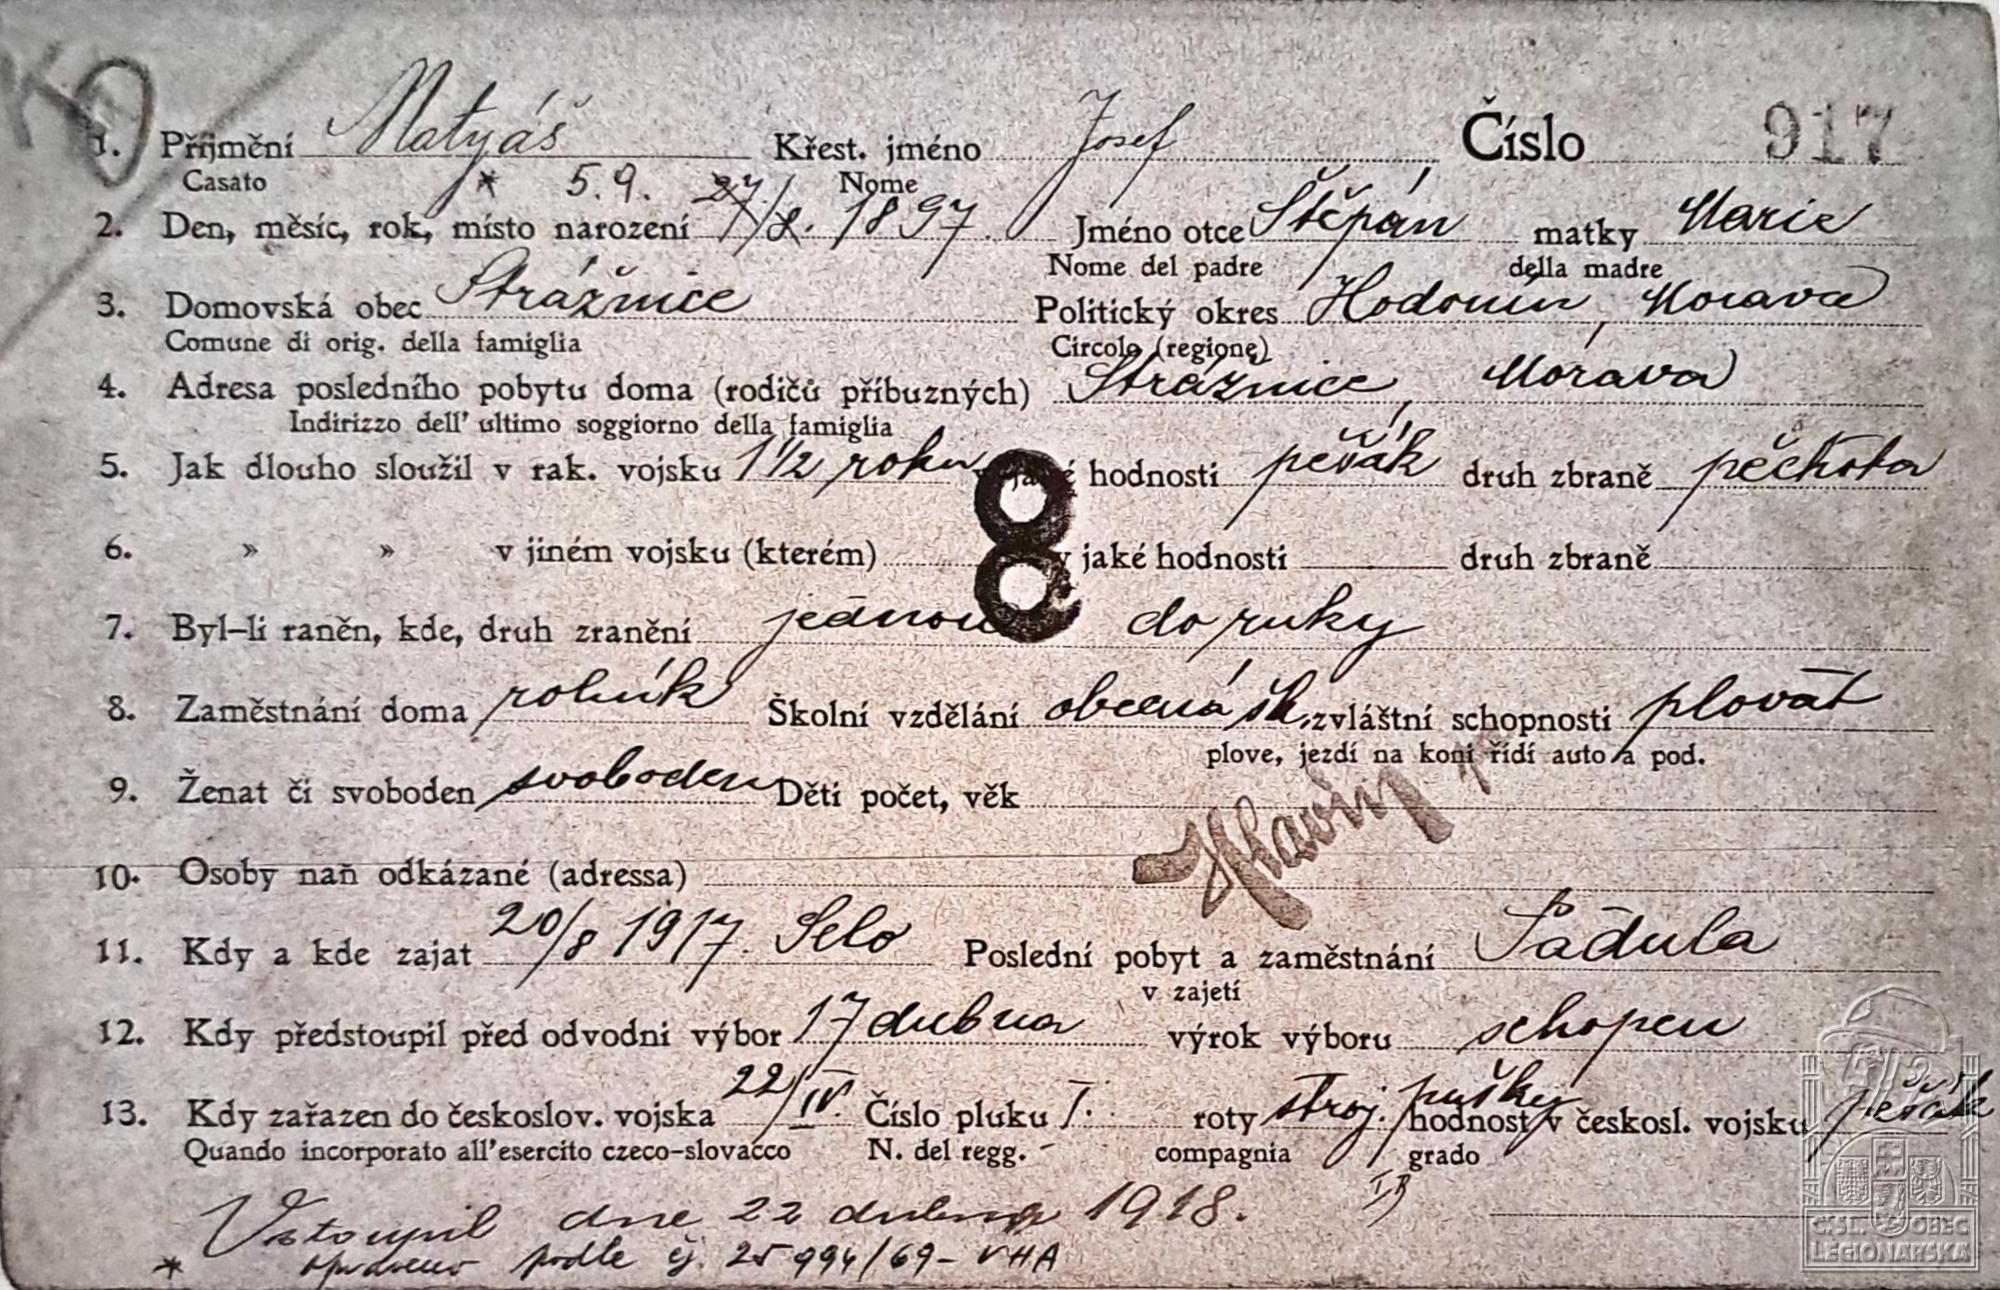 1. Příjmění Matyáš Křest. jméno Josef Číslo 917
Casato * 5.9. Nome
2. Den, měsíc, rok, místo narození 27/8. 1897. Jméno otce Štěpán matky Marie
Nome del padre della madre
3. Domovská obec Strážnice Politický okres Hodonín, Morava
Comune di orig. della famiglia Circolo (regione)
4. Adresa posledního pobytu doma (rodičů příbuzných) Strážnice, Morava
Indirizzo dell' ultimo soggiorno della famiglia
5. Jak dlouho sloužil v rak. vojsku 1 1/2 roku v jaké hodnosti pěšák druh zbraně pěchota
6. » » v jiném vojsku (kterém) v jaké hodnosti druh zbraně
8
7. Byl-li raněn, kde, druh zranění jednou do ruky
8. Zaměstnání doma rolník Školní vzdělání obecná šk. zvláštní schopnosti plovat
plove, jezdí na koni řídí auto a pod.
9. Ženat či svoboden svoboden Děti počet, věk
10. Osoby naň odkázané (adressa)
11. Kdy a kde zajat 20/8 1917. Selo Poslední pobyt a zaměstnání Padula
v zajetí
12. Kdy předstoupil před odvodní výbor 17 dubna výrok výboru schopen
13. Kdy zařazen do českoslov. vojska 22/IV. Číslo pluku I. roty stroj. pušky hodnost v českosl. vojsku pěšák
Quando incorporato all'esercito czeco-slovacco N. del regg. compagnia grado
Vstoupil dne 22 dubna 1918.
* opraveno podle čj. 25994/69-VHA
ČSL. OBEC
LEGIONÁŘSKÁ